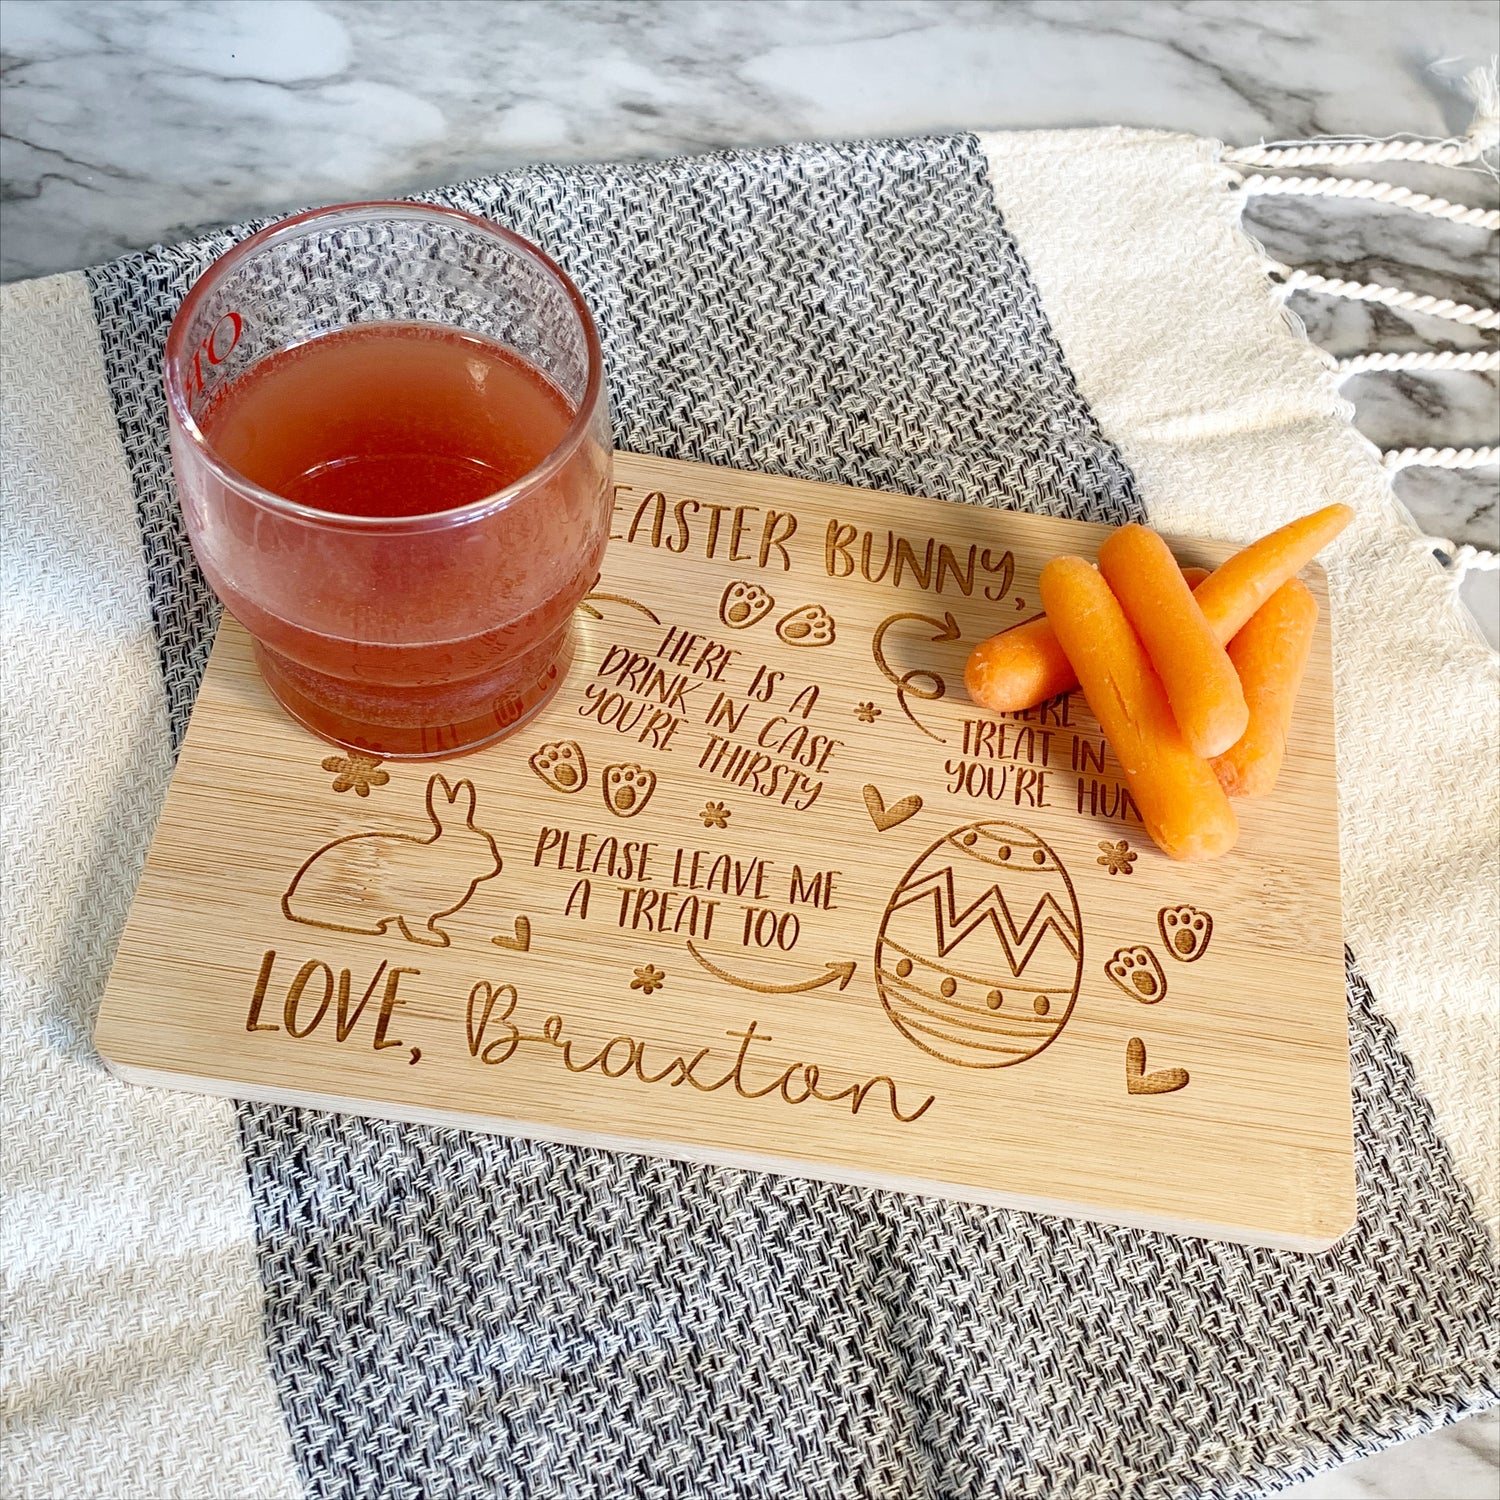 EASTER BUNNY,
HERE IS A
DRINK IN CASE
YOU'RE THIRSTY
HERE
TREAT IN
YOU'RE HUN
PLEASE LEAVE ME
A TREAT TOO
LOVE, Braxton